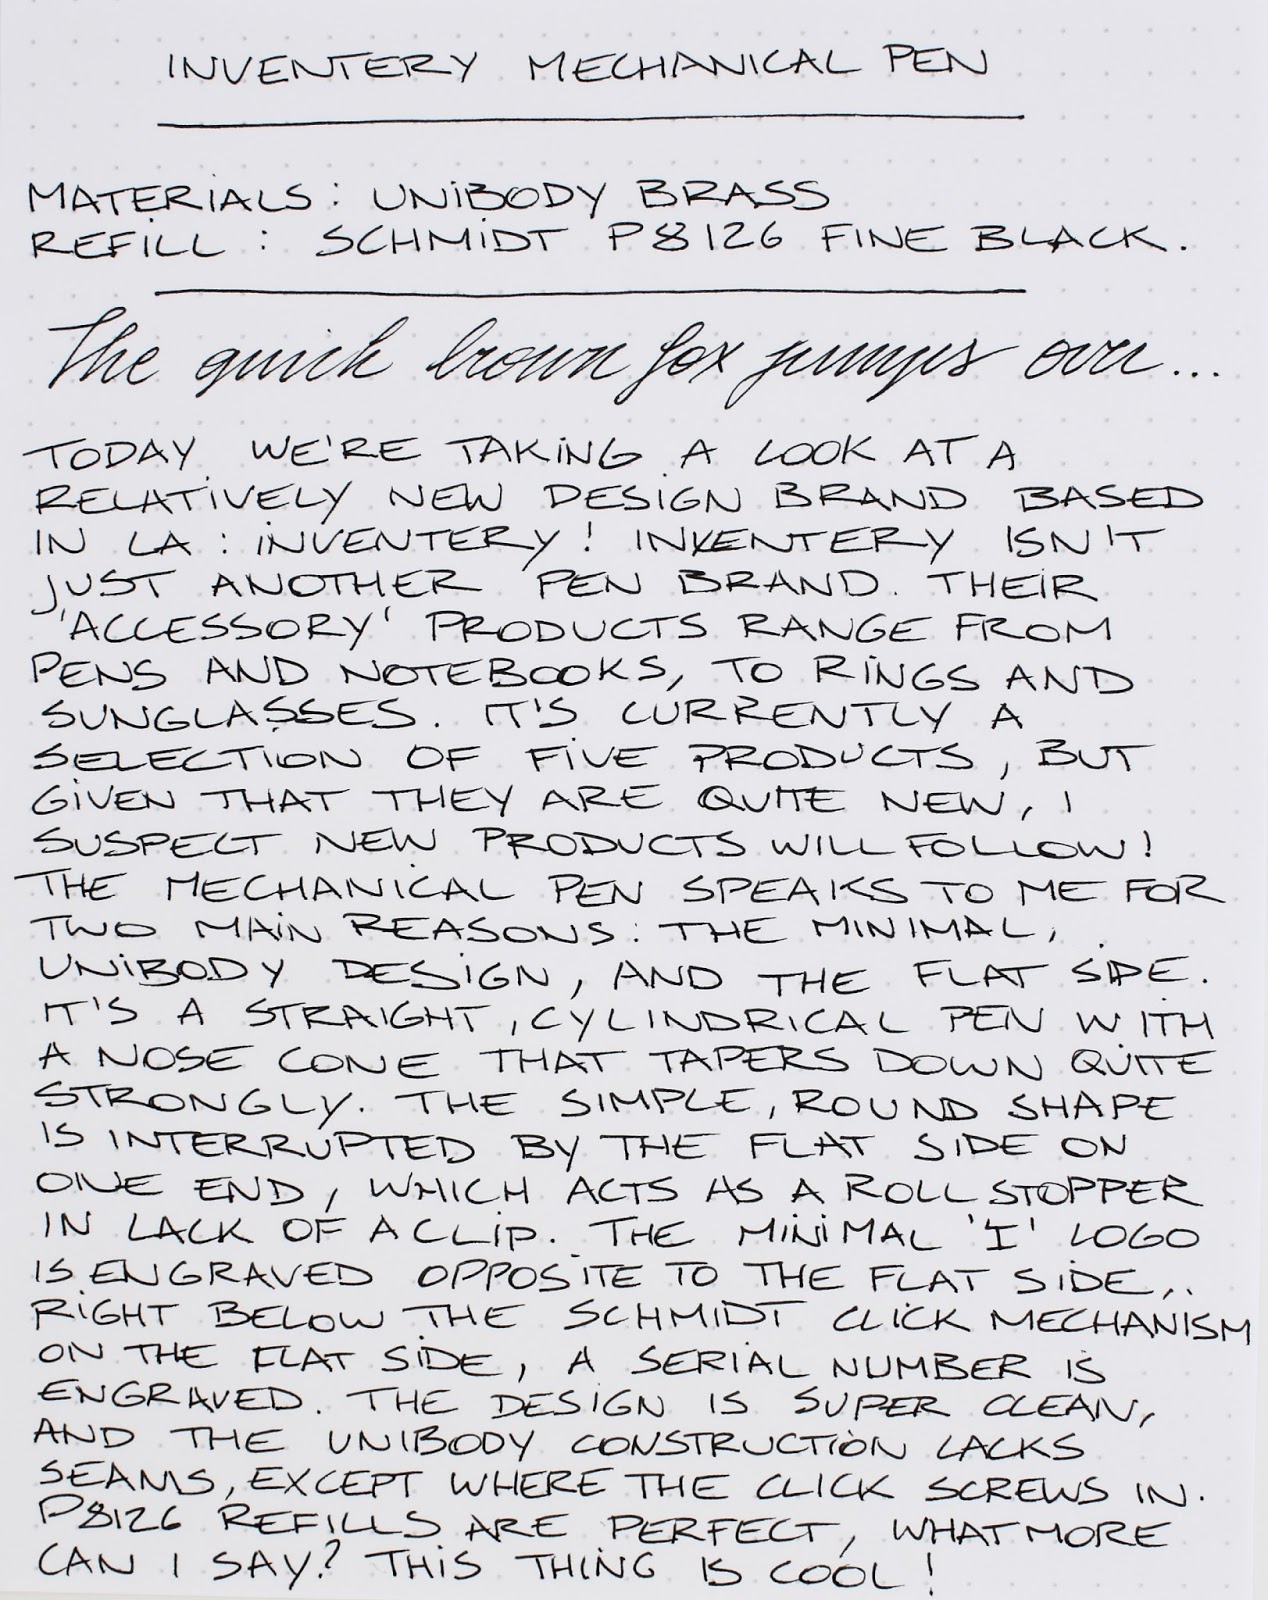 INVENTERY MECHANICAL PEN
MATERIALS: UNIBODY BRASS
REFILL: SCHMIDT P8126 FINE BLACK.
The quick brown fox jumps over...
TODAY WE'RE TAKING A LOOK AT A
RELATIVELY NEW DESIGN BRAND BASED
IN LA: INVENTERY! INVENTERY ISN'T
JUST ANOTHER PEN BRAND. THEIR
'ACCESSORY' PRODUCTS RANGE FROM
PENS AND NOTEBOOKS, TO RINGS AND
SUNGLASSES. IT'S CURRENTLY A
SELECTION OF FIVE PRODUCTS, BUT
GIVEN THAT THEY ARE QUITE NEW, I
SUSPECT NEW PRODUCTS WILL FOLLOW!
THE MECHANICAL PEN SPEAKS TO ME FOR
TWO MAIN REASONS: THE MINIMAL,
UNIBODY DESIGN, AND THE FLAT SIDE.
IT'S A STRAIGHT, CYLINDRICAL PEN WITH
A NOSE CONE THAT TAPERS DOWN QUITE
STRONGLY. THE SIMPLE, ROUND SHAPE
IS INTERRUPTED BY THE FLAT SIDE ON
ONE END, WHICH ACTS AS A ROLL STOPPER
IN LACK OF A CLIP. THE MINIMAL 'I' LOGO
IS ENGRAVED OPPOSITE TO THE FLAT SIDE,.
RIGHT BELOW THE SCHMIDT CLICK MECHANISM
ON THE FLAT SIDE, A SERIAL NUMBER IS
ENGRAVED. THE DESIGN IS SUPER CLEAN,
AND THE UNIBODY CONSTRUCTION LACKS
SEAMS, EXCEPT WHERE THE CLICK SCREWS IN.
P8126 REFILLS ARE PERFECT, WHAT MORE
CAN I SAY? THIS THING IS COOL!